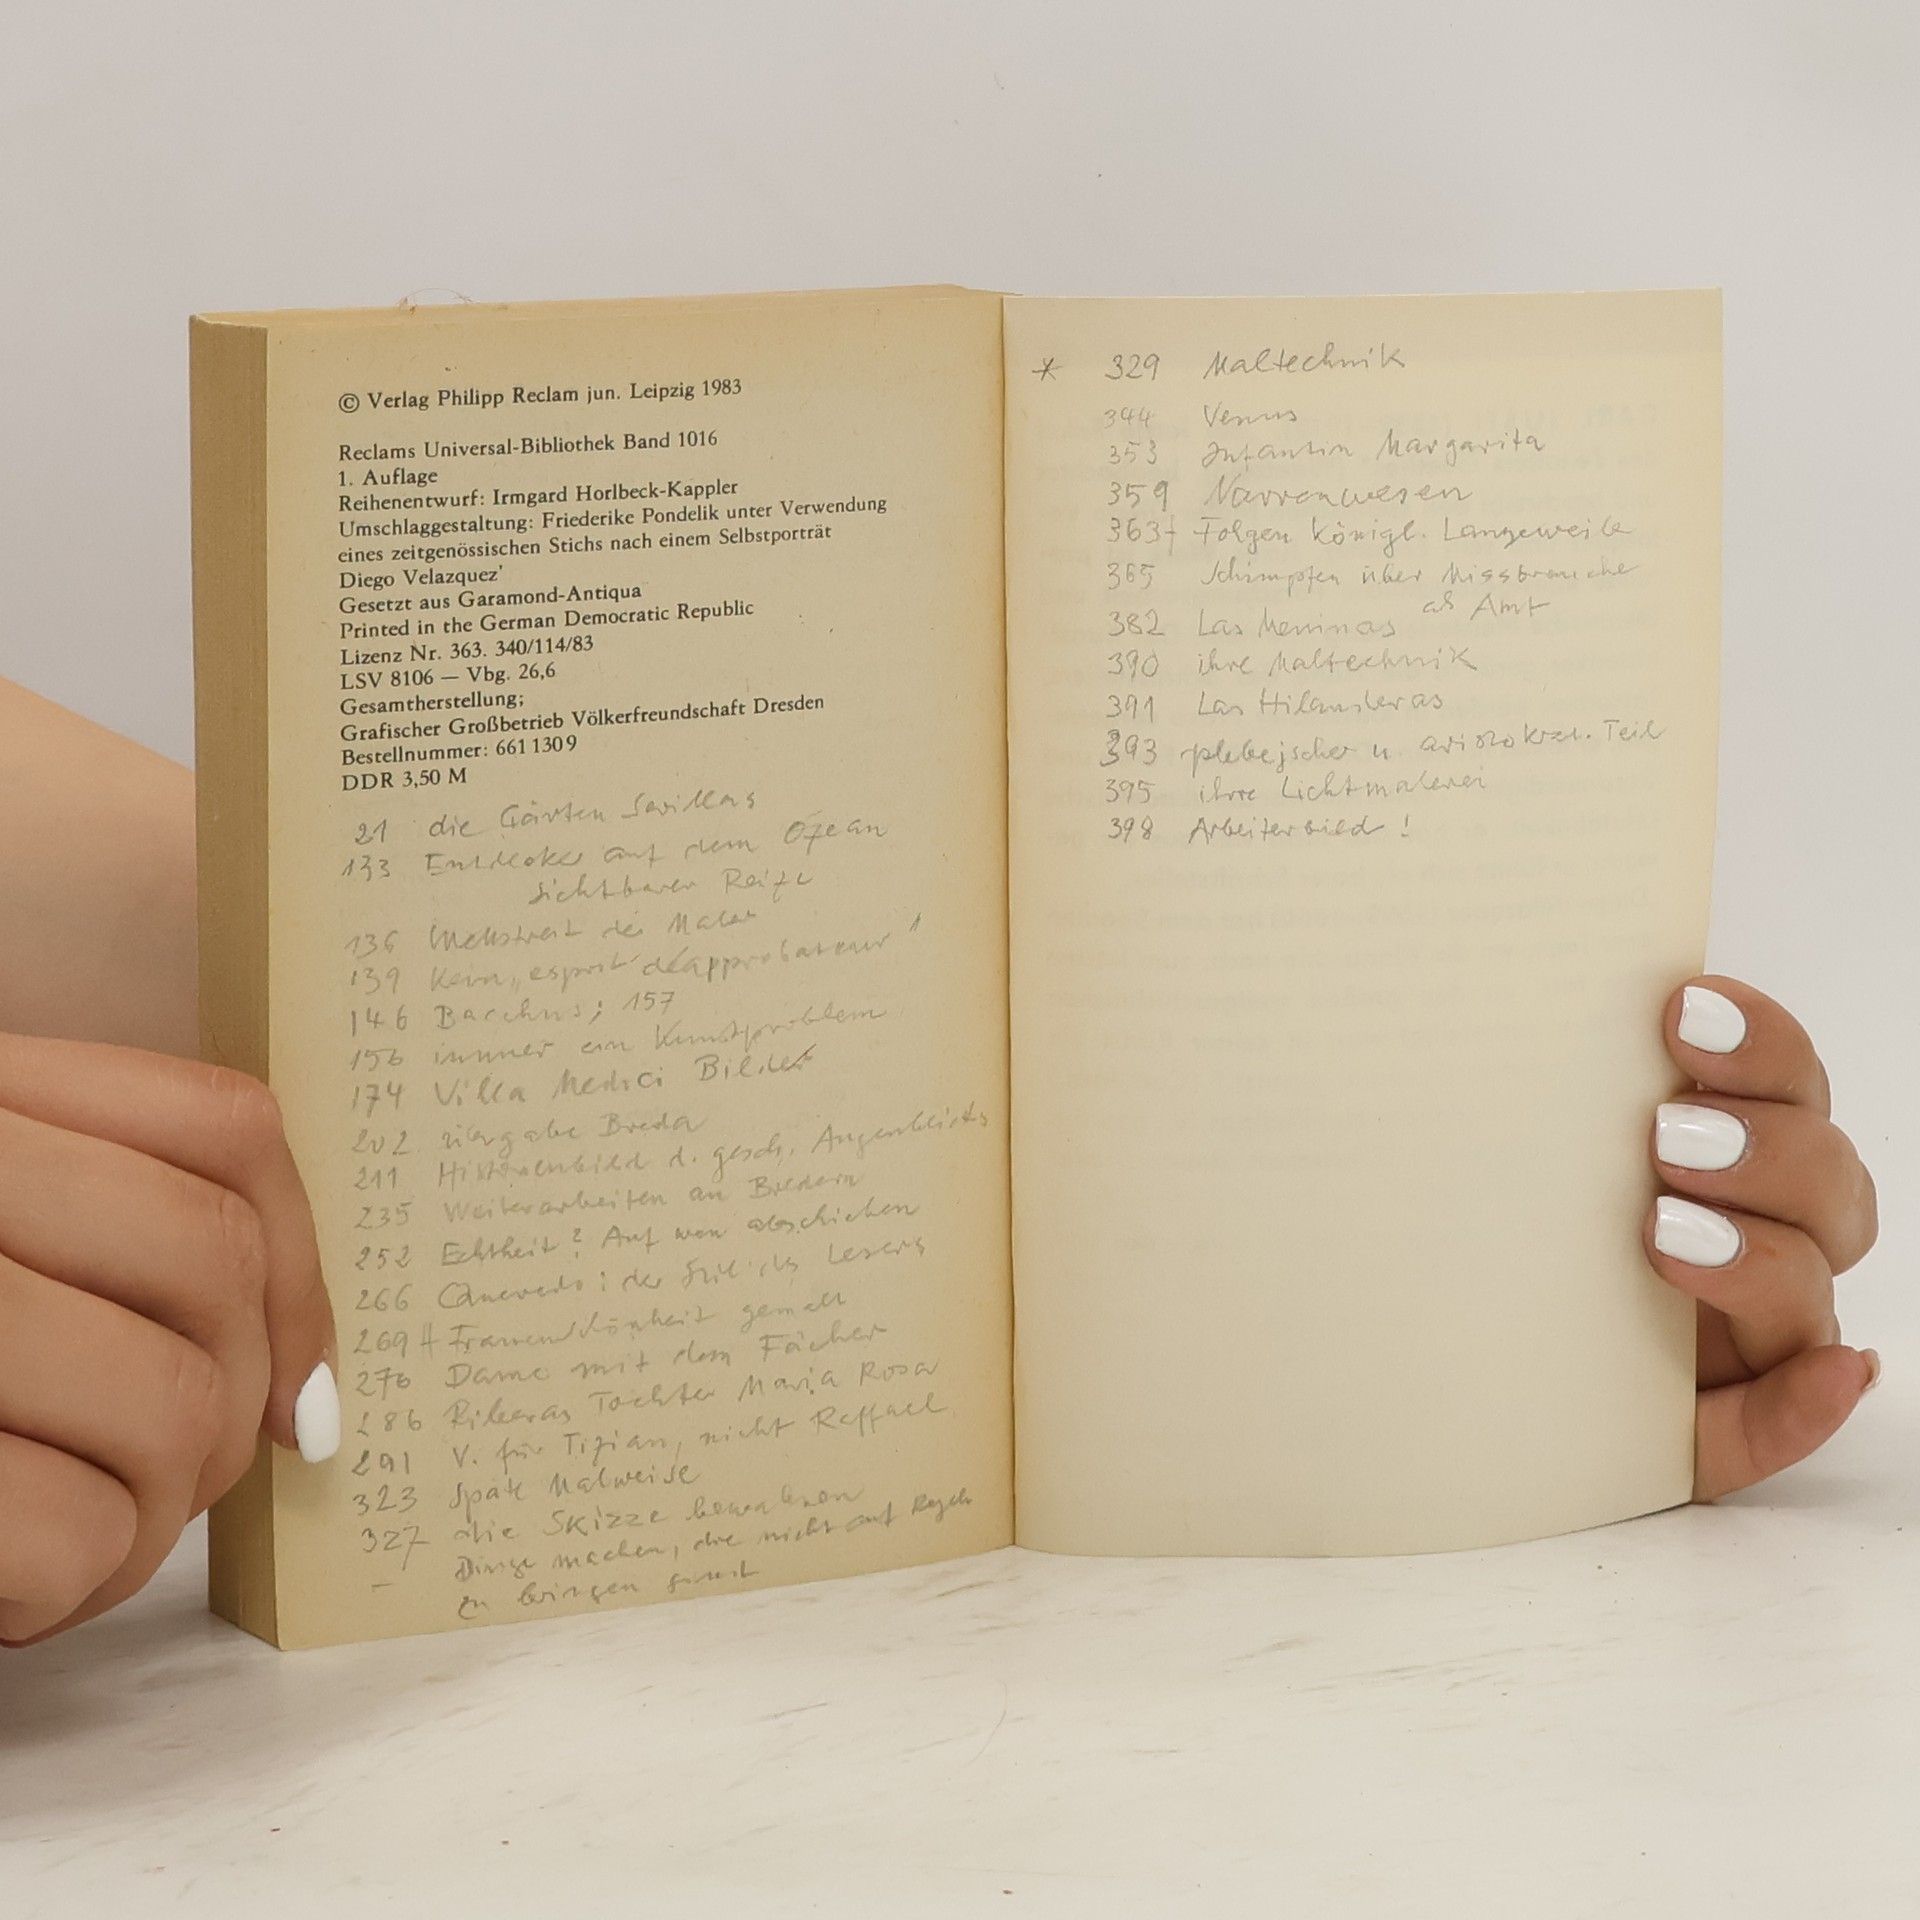 © Verlag Philipp Reclam jun. Leipzig 1983
Reclams Universal-Bibliothek Band 1016
1. Auflage
Reihenentwurf: Irmgard Horlbeck-Kappler
Umschlaggestaltung: Friederike Pondelik unter Verwendung
eines zeitgenössischen Stichs nach einem Selbstporträt
Diego Velazquez'
Gesetzt aus Garamond-Antiqua
Printed in the German Democratic Republic
Lizenz Nr. 363. 340/114/83
LSV 8106 — Vbg. 26,6
Gesamtherstellung;
Grafischer Großbetrieb Völkerfreundschaft Dresden
Bestellnummer: 661 130 9
DDR 3,50 M
21 die Gärten Sevillas
133 Entdecker auf dem Ozean
sichtbarer Reize
136 der Maler
139 Kein „esprit désapprobateur"
146 Bacchus; 157
156 immer ein Kunstproblem
174 Villa Medici Bilder
202 Übergabe Breda
211 Historienbild d. gesch. Augenblicks
235 Weiterarbeiten an Bildern
252 Echtheit? Auf wen abschieben
266 Quevedo: der Stil des Lesers
269 Frauenschönheit gemalt
276 Dame mit dem Fächer
286 Riberas Tochter Maria Rosa
291 V. für Tizian, nicht Raffael
323 späte Malweise
327 die Skizze bewahren
– Dinge machen, die nicht auf Regeln
zu bringen sind
* 329 Maltechnik
344 Venus
353 Infantin Margarita
359 Narrenwesen
363f Folgen königl. Langeweile
365 Schimpfen über Missbräuche
als Amt
382 Las Meninas
390 ihre Maltechnik
391 Las Hilanderas
393 plebejischer u. aristokrat. Teil
395 ihre Lichtmalerei
398 Arbeiterbild!